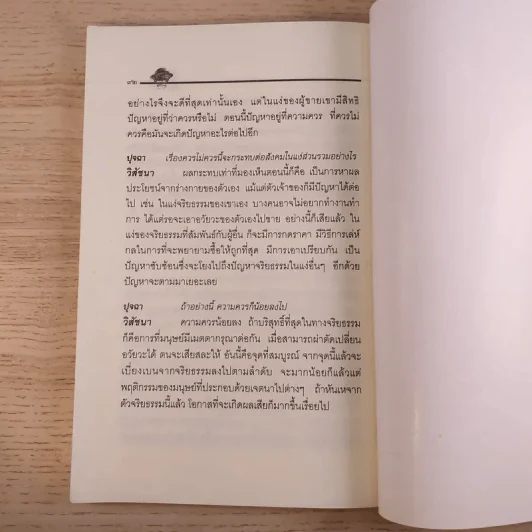 ๓๒
อย่างไรจึงจะดีที่สุดเท่านั้นเอง แต่ในแง่ของผู้ขายเขามีสิทธิ
ปัญหาอยู่ที่ว่าควรหรือไม่ ตอนนี้ปัญหาอยู่ที่ความควร ที่ควรไม่
ควรคือมันจะเกิดปัญหาอะไรต่อไปอีก
ปุจฉา เรื่องควรไม่ควรนี้จะกระทบต่อสังคมในแง่ส่วนรวมอย่างไร
วิสัชนา ผลกระทบเท่าที่มองเห็นตอนนี้ก็คือ เป็นการหาผล
ประโยชน์จากร่างกายของตัวเอง แม้แต่ตัวเจ้าของก็มีปัญหาได้ต่อ
ไป เช่น ในแง่จริยธรรมของเขาเอง บางคนอาจไม่อยากทำงานทำ
การ ได้แต่รอจะเอาอวัยวะของตัวเองไปขาย อย่างนี้ก็เสียแล้ว ใน
แง่ของจริยธรรมที่สัมพันธ์กับผู้อื่น ก็จะมีการกดราคา มีวิธีการเล่ห์
กลในการที่จะพยายามซื้อให้ถูกที่สุด มีการเอาเปรียบกัน เป็น
ปัญหาซับซ้อนซึ่งจะโยงไปถึงปัญหาจริยธรรมในแง่อื่นๆ อีกด้วย
ปัญหาจะตามมาเยอะเลย
ปุจฉา ถ้าอย่างนี้ ความควรก็น้อยลงไป
วิสัชนา ความควรน้อยลง ถ้าบริสุทธิ์ที่สุดในทางจริยธรรม
ก็คือการที่มนุษย์มีเมตตากรุณาต่อกัน เมื่อสามารถผ่าตัดเปลี่ยน
อวัยวะได้ ตนจะเสียสละให้ อันนี้คือจุดที่สมบูรณ์ จากจุดนี้แล้วจะ
เบี่ยงเบนจากจริยธรรมลงไปตามลำดับ จะมากน้อยก็แล้วแต่
พฤติกรรมของมนุษย์ที่ประกอบด้วยเจตนาไปต่างๆ ถ้าหันเหจาก
ตัวจริยธรรมนี้แล้ว โอกาสที่จะเกิดผลเสียก็มากขึ้นเรื่อยไป